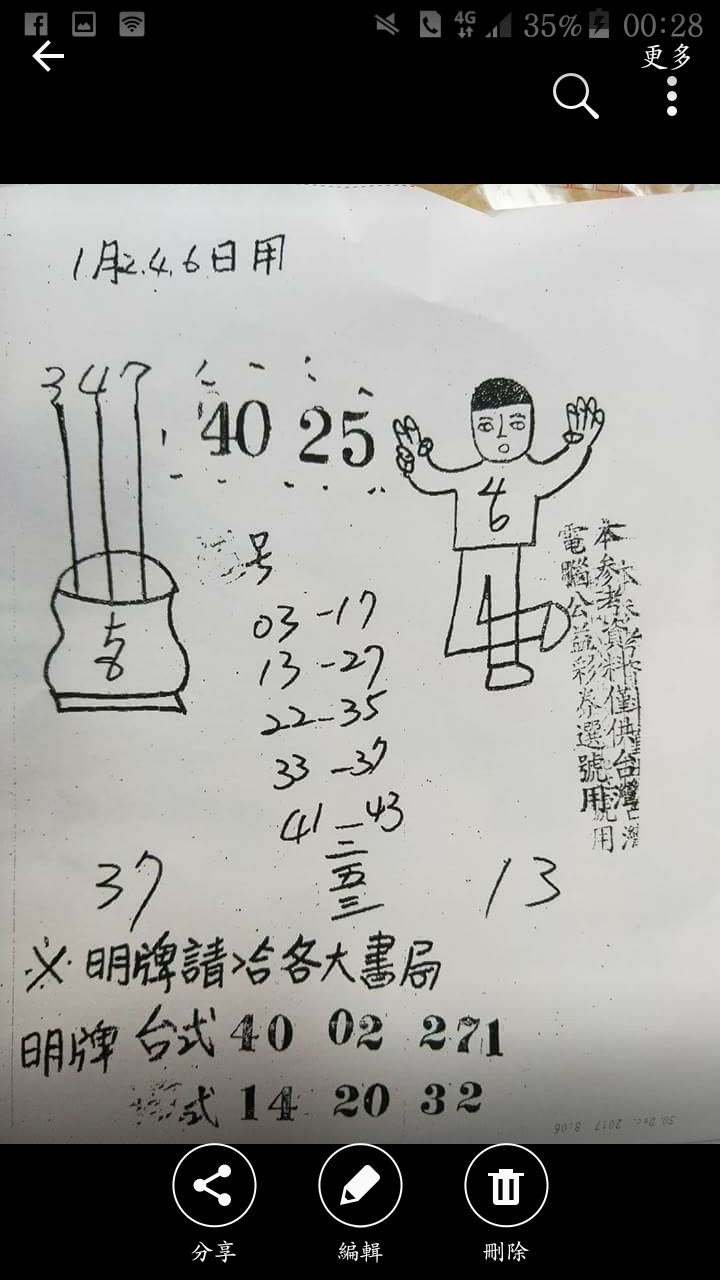 4G 35% 00:28
更多
1月2.4.6日用
347
40 25
4
6
七
8
号
03-17
13-27
22-35
33-37
41-43
二
五
三
37
13
本參考資料僅供台灣
電腦公益彩券選號用
※明牌請洽各大書局
明牌 台式 40 02 271
式 14 20 32
30. Dec. 2017 8:06
分享
編輯
刪除